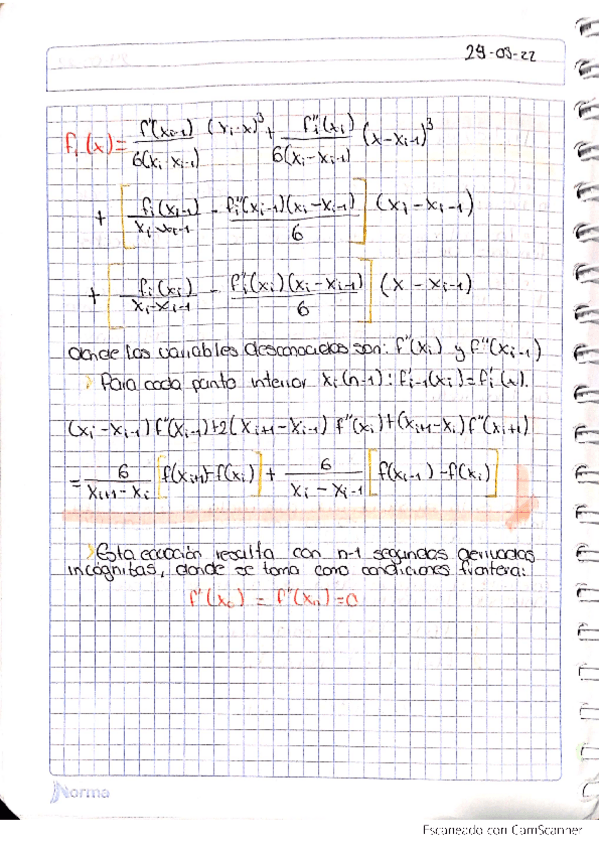 29-03-22
fᵢ(x) = f''(xᵢ₋₁)/6(xᵢ - xᵢ₋₁) (xᵢ-x)³ + fᵢ''(xᵢ)/6(xᵢ-xᵢ₋₁) (x-xᵢ₋₁)³
+ [fᵢ(xᵢ₋₁)/xᵢ-xᵢ₋₁ - fᵢ''(xᵢ₋₁)(xᵢ-xᵢ₋₁)/6] (xᵢ-xᵢ₋₁)
+ [fᵢ(xᵢ)/xᵢ-xᵢ₋₁ - fᵢ''(xᵢ)(xᵢ-xᵢ₋₁)/6] (x - xᵢ₋₁)
donde las variables desconocidas son: f''(xᵢ) y f''(xᵢ₋₁)
> Para cada punto interior xᵢ(n-1): f'ᵢ₋₁(xᵢ)=fᵢ'(x).
(xᵢ-xᵢ₋₁)f''(xᵢ₋₁)+2(xᵢ₊₁-xᵢ₋₁) f''(xᵢ)+(xᵢ₊₁-xᵢ)f''(xᵢ₊₁)
= 6/xᵢ₊₁-xᵢ [f(xᵢ₊₁)-f(xᵢ)] + 6/xᵢ-xᵢ₋₁ [f(xᵢ₋₁)-f(xᵢ)]
> Esta ecuación resulta con n-1 segundas derivadas
incógnitas, donde se toma como condiciones frontera:
f''(x₀) = f''(xₙ)=0
Norma
Escaneado con CamScanner